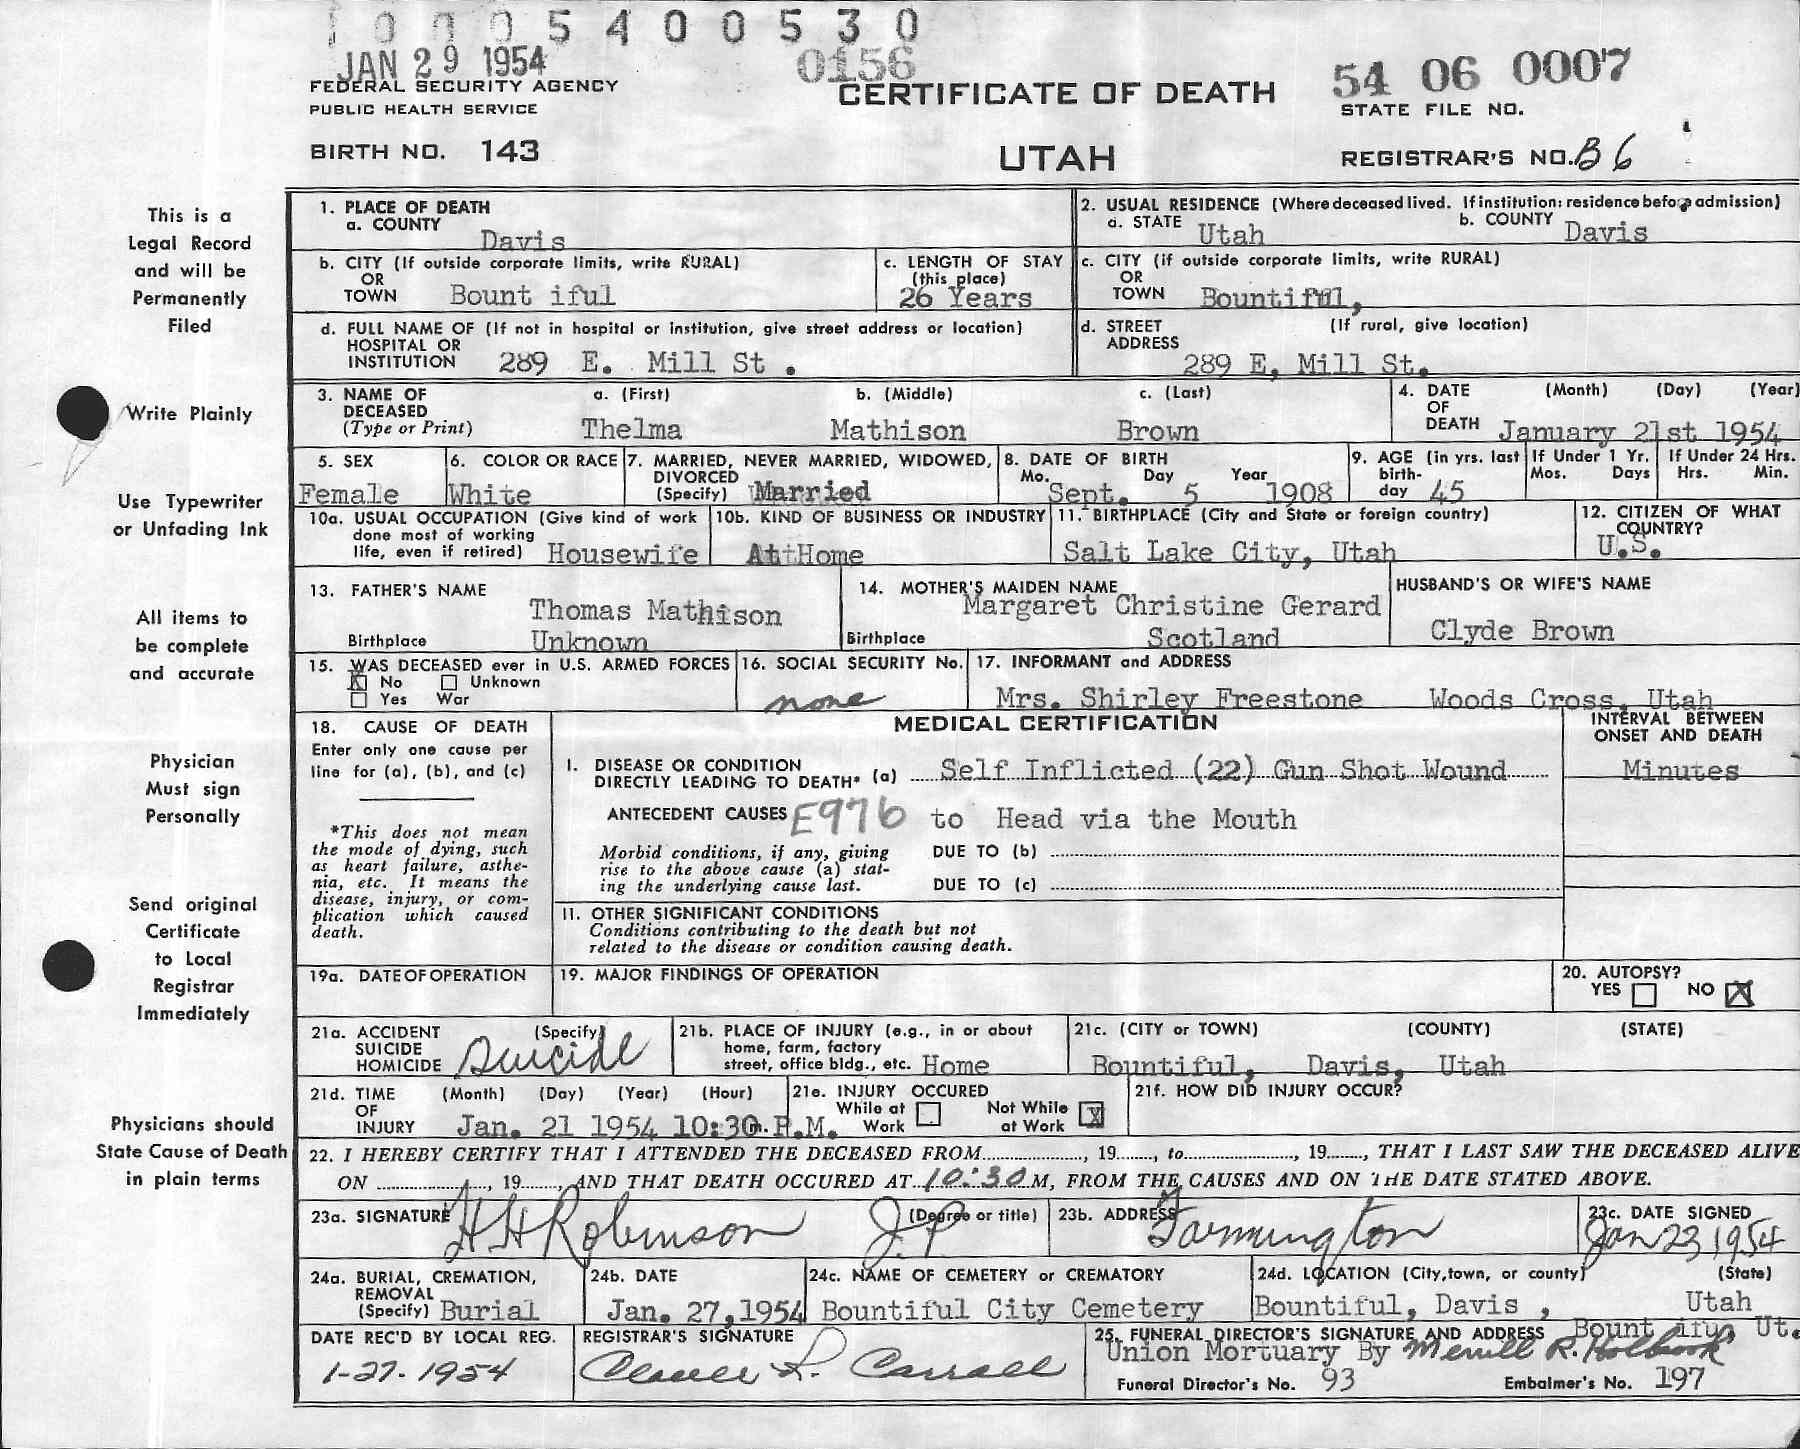 1 0 0 0 5 4 0 0 5 3 0
JAN 29 1954
0156
54 06 0007
FEDERAL SECURITY AGENCY
PUBLIC HEALTH SERVICE
CERTIFICATE OF DEATH
STATE FILE NO.
BIRTH NO. 143
UTAH
REGISTRAR'S NO. B 6
This is a
Legal Record
and will be
Permanently
Filed
Write Plainly
Use Typewriter
or Unfading Ink
All items to
be complete
and accurate
Physician
Must sign
Personally
Send original
Certificate
to Local
Registrar
Immediately
Physicians should
State Cause of Death
in plain terms
1. PLACE OF DEATH
a. COUNTY
Davis
2. USUAL RESIDENCE (Where deceased lived. If institution: residence before admission)
a. STATE Utah b. COUNTY Davis
b. CITY (If outside corporate limits, write RURAL)
OR
TOWN Bount iful
c. LENGTH OF STAY
(this place)
26 Years
c. CITY (if outside corporate limits, write RURAL)
OR
TOWN Bountiful,
d. FULL NAME OF (If not in hospital or institution, give street address or location)
HOSPITAL OR
INSTITUTION 289 E. Mill St .
d. STREET (If rural, give location)
ADDRESS
289 E. Mill St.
3. NAME OF a. (First) b. (Middle) c. (Last)
DECEASED
(Type or Print) Thelma Mathison Brown
4. DATE (Month) (Day) (Year)
OF
DEATH January 21st 1954
5. SEX
Female
6. COLOR OR RACE
White
7. MARRIED, NEVER MARRIED, WIDOWED,
DIVORCED
(Specify) Married
8. DATE OF BIRTH
Mo. Day Year
Sept. 5 1908
9. AGE (in yrs. last
birth-
day 45
If Under 1 Yr.
Mos. Days
If Under 24 Hrs.
Hrs. Min.
10a. USUAL OCCUPATION (Give kind of work
done most of working
life, even if retired) Housewife
10b. KIND OF BUSINESS OR INDUSTRY
At Home
11. BIRTHPLACE (City and State or foreign country)
Salt Lake City, Utah
12. CITIZEN OF WHAT
COUNTRY?
U.S.
13. FATHER'S NAME
Thomas Mathison
Birthplace Unknown
14. MOTHER'S MAIDEN NAME
Margaret Christine Gerard
Birthplace Scotland
HUSBAND'S OR WIFE'S NAME
Clyde Brown
15. WAS DECEASED ever in U.S. ARMED FORCES
X No Unknown
Yes War
16. SOCIAL SECURITY No.
none
17. INFORMANT and ADDRESS
Mrs. Shirley Freestone Woods Cross, Utah
18. CAUSE OF DEATH
Enter only one cause per
line for (a), (b), and (c)
*This does not mean
the mode of dying, such
as heart failure, asthe-
nia, etc. It means the
disease, injury, or com-
plication which caused
death.
MEDICAL CERTIFICATION
INTERVAL BETWEEN
ONSET AND DEATH
I. DISEASE OR CONDITION
DIRECTLY LEADING TO DEATH* (a) Self Inflicted (22) Gun Shot Wound Minutes
ANTECEDENT CAUSES E976 to Head via the Mouth
Morbid conditions, if any, giving
rise to the above cause (a) stat-
ing the underlying cause last.
DUE TO (b)
DUE TO (c)
11. OTHER SIGNIFICANT CONDITIONS
Conditions contributing to the death but not
related to the disease or condition causing death.
19a. DATE OF OPERATION
19. MAJOR FINDINGS OF OPERATION
20. AUTOPSY?
YES NO X
21a. ACCIDENT (Specify)
SUICIDE
HOMICIDE Suicide
21b. PLACE OF INJURY (e.g., in or about
home, farm, factory
street, office bldg., etc. Home
21c. (CITY or TOWN) (COUNTY) (STATE)
Bountiful, Davis, Utah
21d. TIME (Month) (Day) (Year) (Hour)
OF
INJURY Jan. 21 1954 10:30 m. P.M.
21e. INJURY OCCURED
While at Not While
Work at Work X
21f. HOW DID INJURY OCCUR?
22. I HEREBY CERTIFY THAT I ATTENDED THE DECEASED FROM, 19, to, 19, THAT I LAST SAW THE DECEASED ALIVE
ON, 19, AND THAT DEATH OCCURED AT 10:30 M, FROM THE CAUSES AND ON THE DATE STATED ABOVE.
23a. SIGNATURE H H Robinson J.P. (Degree or title)
23b. ADDRESS Farmington
23c. DATE SIGNED
Jan 23 1954
24a. BURIAL, CREMATION,
REMOVAL
(Specify) Burial
24b. DATE
Jan. 27, 1954
24c. NAME OF CEMETERY or CREMATORY
Bountiful City Cemetery
24d. LOCATION (City, town, or county) (State)
Bountiful, Davis , Utah
DATE REC'D BY LOCAL REG.
1-27-1954
REGISTRAR'S SIGNATURE
25. FUNERAL DIRECTOR'S SIGNATURE AND ADDRESS Bount iful, Ut.
Union Mortuary By Merrill R. Holbrook
Funeral Director's No. 93 Embalmer's No. 197